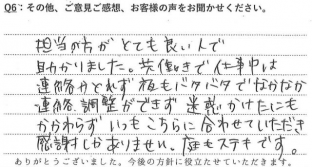 Q6：その他、ご意見ご感想、お客様の声をお聞かせください。
担当の方がとても良い人で
助かりました。共働きで仕事中は
連絡がとれず夜もバタバタでなかなか
連絡、調整ができず迷惑かけたにも
かかわらずいつもこちらに合わせていただき
感謝しかありません。庭もステキです。
ありがとうございました。今後の方針に役立たせていただきます。